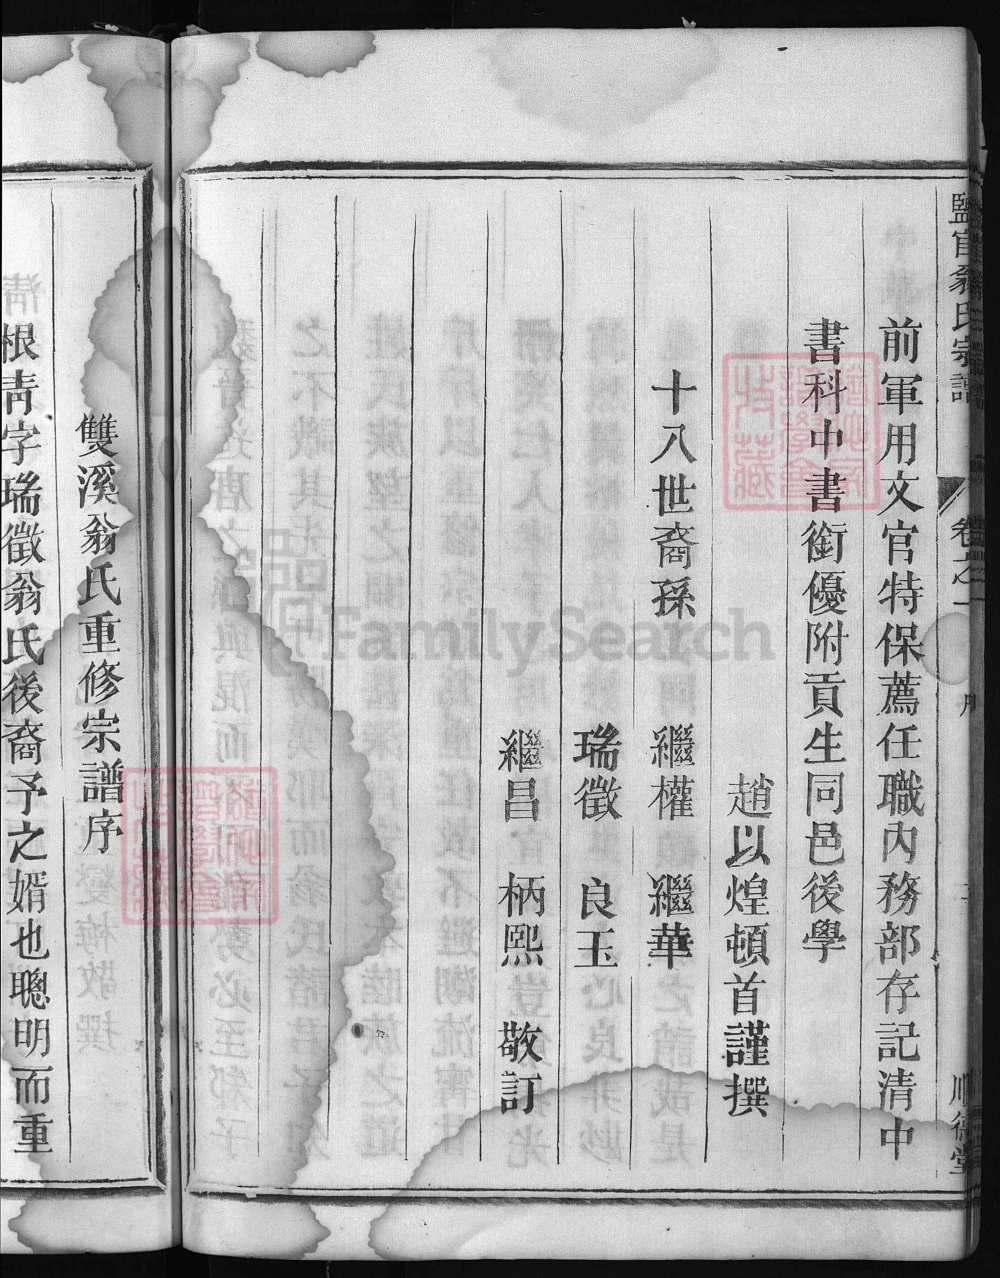 鹽官翁氏宗譜 卷之一 序 順德堂
前軍用文官特保薦任職內務部存記清中
書科中書銜優附貢生同邑後學
趙以煌頓首謹撰
十八世裔孫 繼權 繼華
瑞徵 良玉
繼昌 柄熙 敬訂
雙溪翁氏重修宗譜序
根青字瑞徵翁氏後裔予之婿也聰明而重
FamilySearch